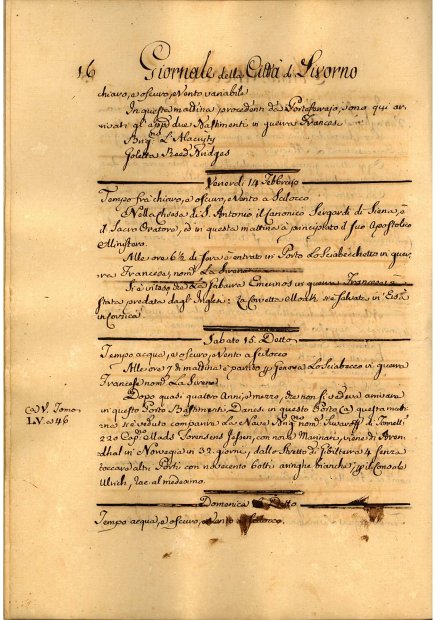 16 Giornale della Città di Livorno
chiaro, e oscuro, e Vento variabile
In questa mattina procedenti da Portoferrajo, sono qui ar-
rivati gl'app. due Bastimenti in guerra Francesi
Brig.
Goletta
Venerdi 14 Febbrajo
Tempo frà chiaro, e oscuro, e Vento a Scilocco
Nella Chiesa di S. Antonio il Canonico Sergardi di Siena, è
il Sacro Oratore, ed in questa mattina à principiato il suo Apostolico
Ministero.
Alle ore 6½ di sera è entrato in Porto lo Sciabecchotto in guer-
ra Francese, nom. La Sirena
Si è inteso che la Fabiura in guerra Francese è
stata predata dagl'Inglesi: la Corvetta si è salvata in
in Corsica
Sabato 15. Detto
Tempo acqua, e oscuro, e Vento a Scilocco
Alle ore 7 di mattina è partito p Genova lo Sciabecco in guerra
Francese nom. La Sirena
Dopo quasi quattro Anni, e mezzo, che non si vedeva arrivare
(a) V. Tomo
LV. a 46
in questo Porto Bastimenti Danesi in questo Porto (a) questa mat-
tina si è veduto comparire la Nave nom. di Tonnell.
220 Cap. Mads con nove Marinari, viene di Aren-
dhal in Norvegia in 32. giorni, dallo Stretto di Gibilterra 4 senza
toccare altri Porti con novecento botti aringhe bianche, p il Console
Ulrich, rac. al medesimo.
Domenica Detto
Tempo acqua, e oscuro, e Vento a Scilocco.